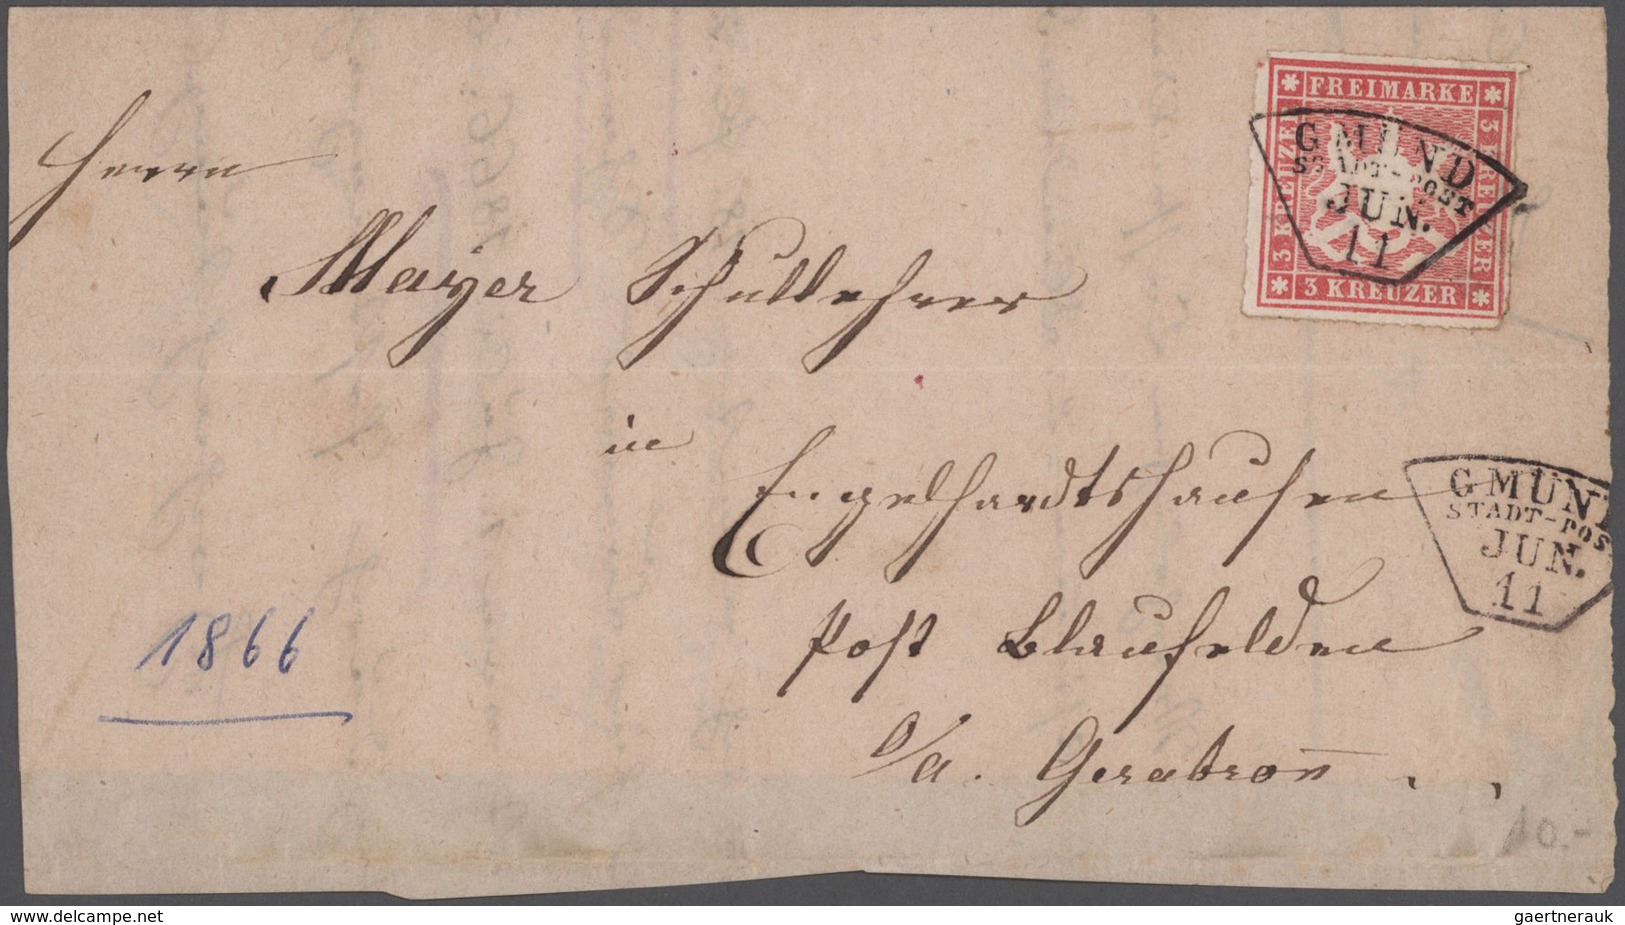 Herrn
Mayer Schullehrer
in
Engelhardtshausen
Post Blaufelden
O/A. Gerabronn
1866
FREIMARKE
3 KREUZER
3 KREUZER
3 KREUZER
GMÜND
STADT-POST
JUN.
11
GMÜND
STADT-POS
JUN.
11
10.-
www.delcampe.net
gaertnerauk